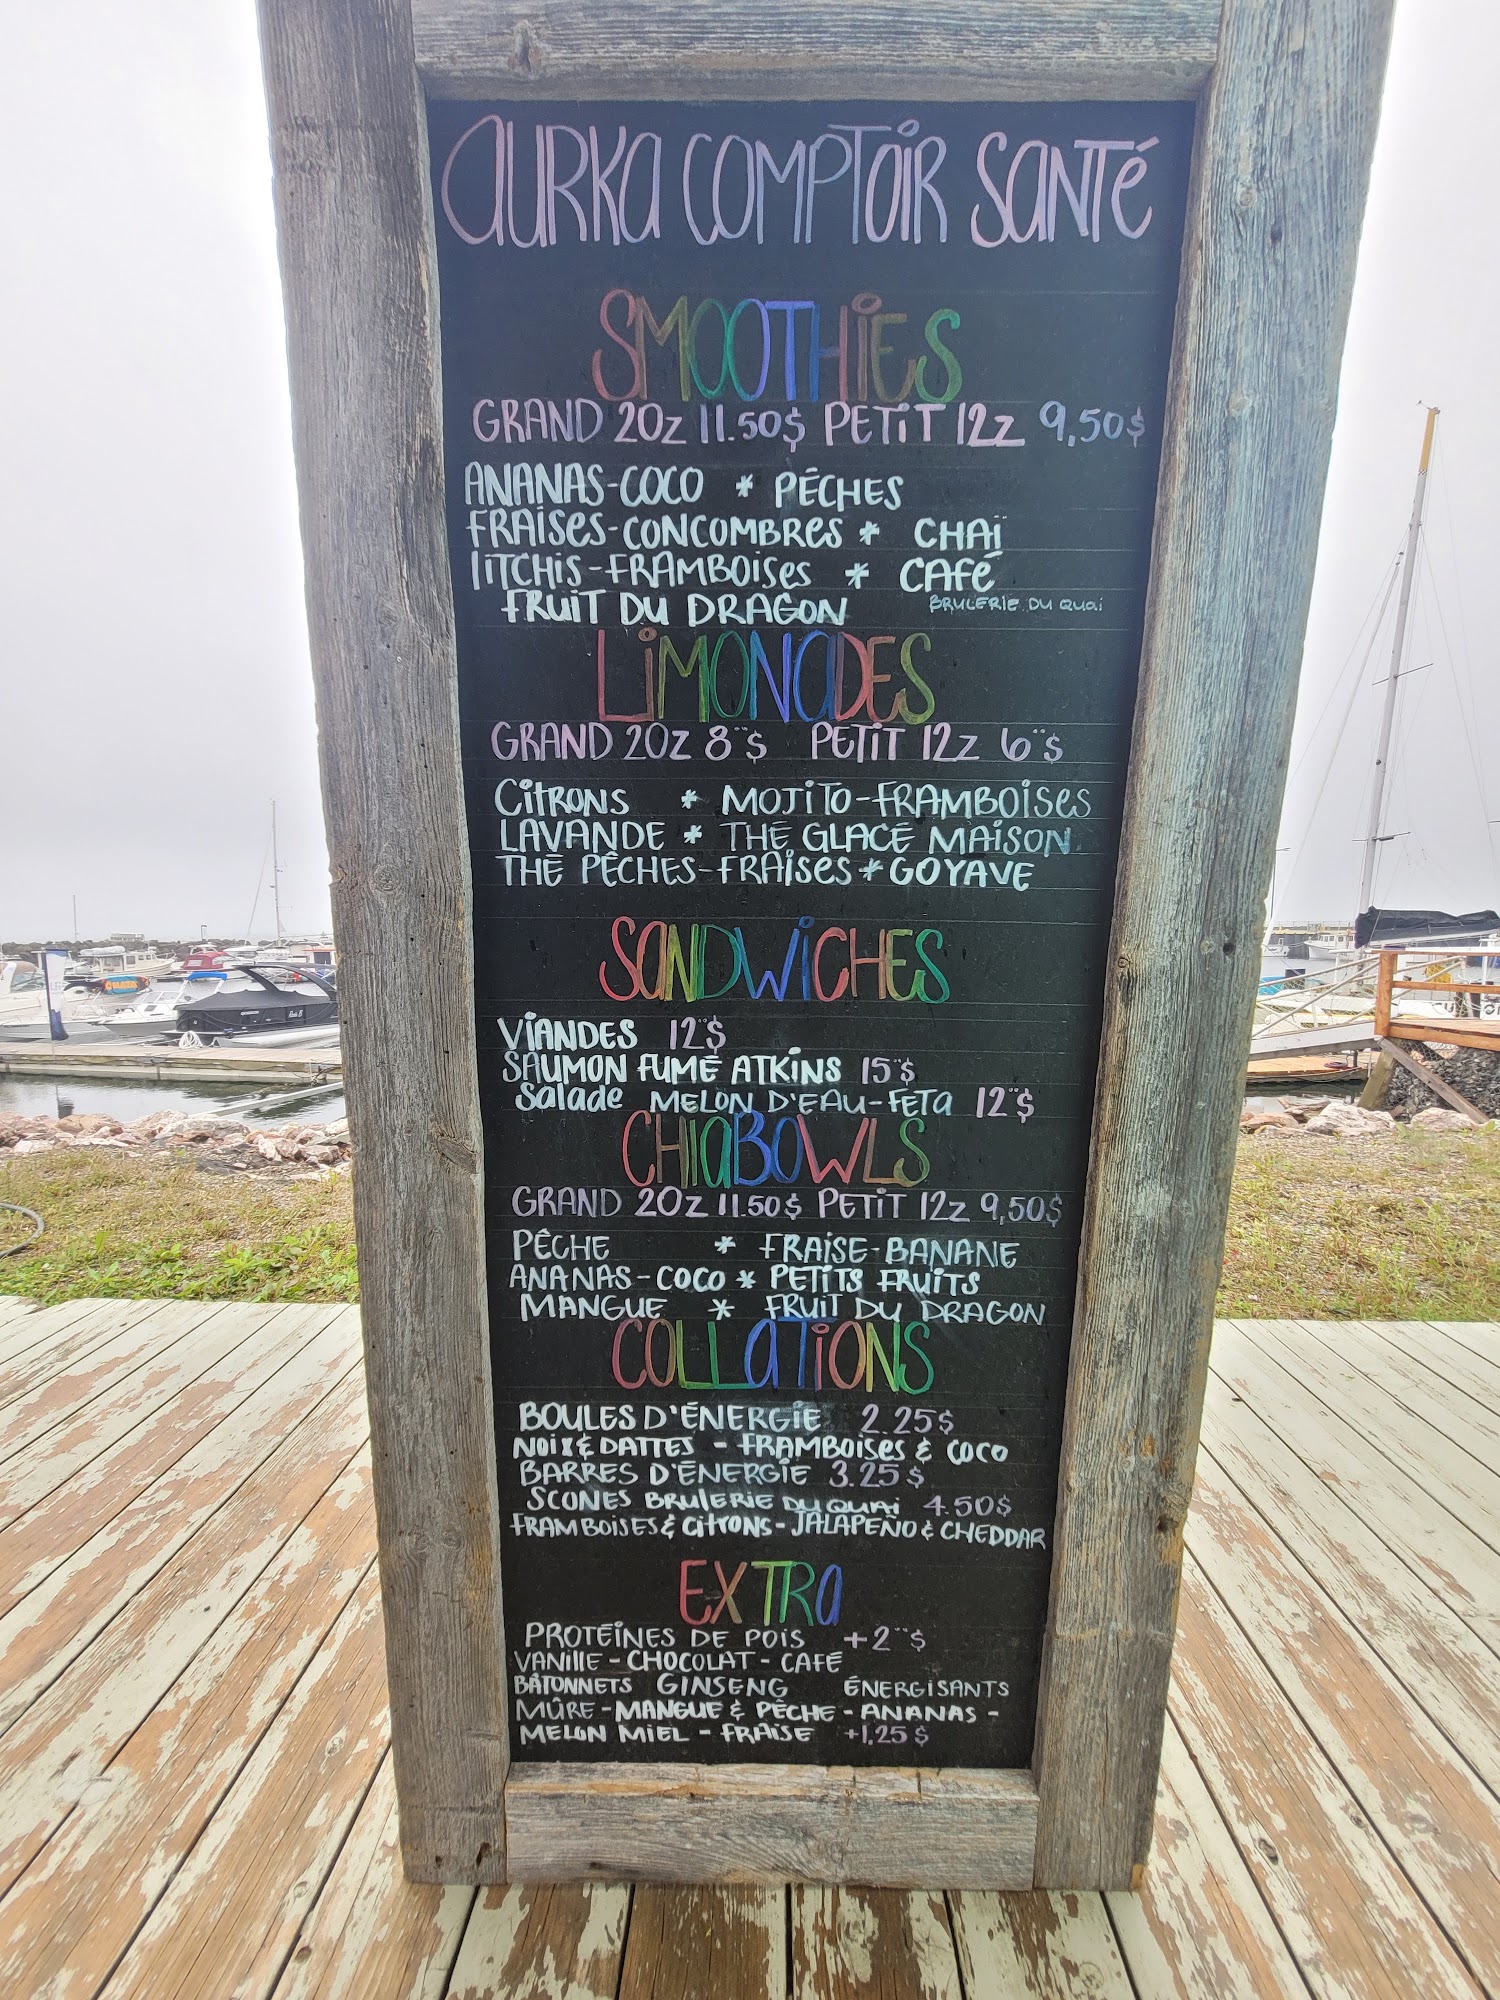 aURKa COMPTOiR SaNTé
SMOOTHiES
GRAND 20z 11.50$ PETiT 12z 9,50$
ANANAS-COCO * PÊCHES
FRAISES-CONCOMBRES * CHAÏ
LITCHIS-FRAMBOISES * CAFÉ
FRUIT DU DRAGON BRULERIE DU QUAI
LiMONaDES
GRAND 20z 8°°$ PETiT 12z 6°°$
CITRONS * MOJITO-FRAMBOISES
LAVANDE * THÉ GLACÉ MAISON
THÉ PÊCHES-FRAISES * GOYAVE
SaNDWiCHES
VIANDES 12°°$
SAUMON FUMÉ ATKINS 15°°$
Salade MELON D'EAU-FETA 12°°$
CHiaBOWLS
GRAND 20z 11.50$ PETiT 12z 9,50$
PÊCHE * FRAISE-BANANE
ANANAS-COCO * PETITS FRUITS
MANGUE * FRUIT DU DRAGON
COLLaTiONS
BOULES D'ÉNERGIE 2.25$
NOIX & DATTES - FRAMBOISES & COCO
BARRES D'ÉNERGIE 3.25$
SCONES BRULERIE DU QUAI 4.50$
FRAMBOISES & CITRONS - JALAPEÑO & CHEDDAR
EXTRa
PROTÉINES DE POIS +2°°$
VANILLE - CHOCOLAT - CAFÉ
BÂTONNETS GINSENG ÉNERGISANTS
MÛRE - MANGUE & PÊCHE - ANANAS -
MELON MIEL - FRAISE +1,25$